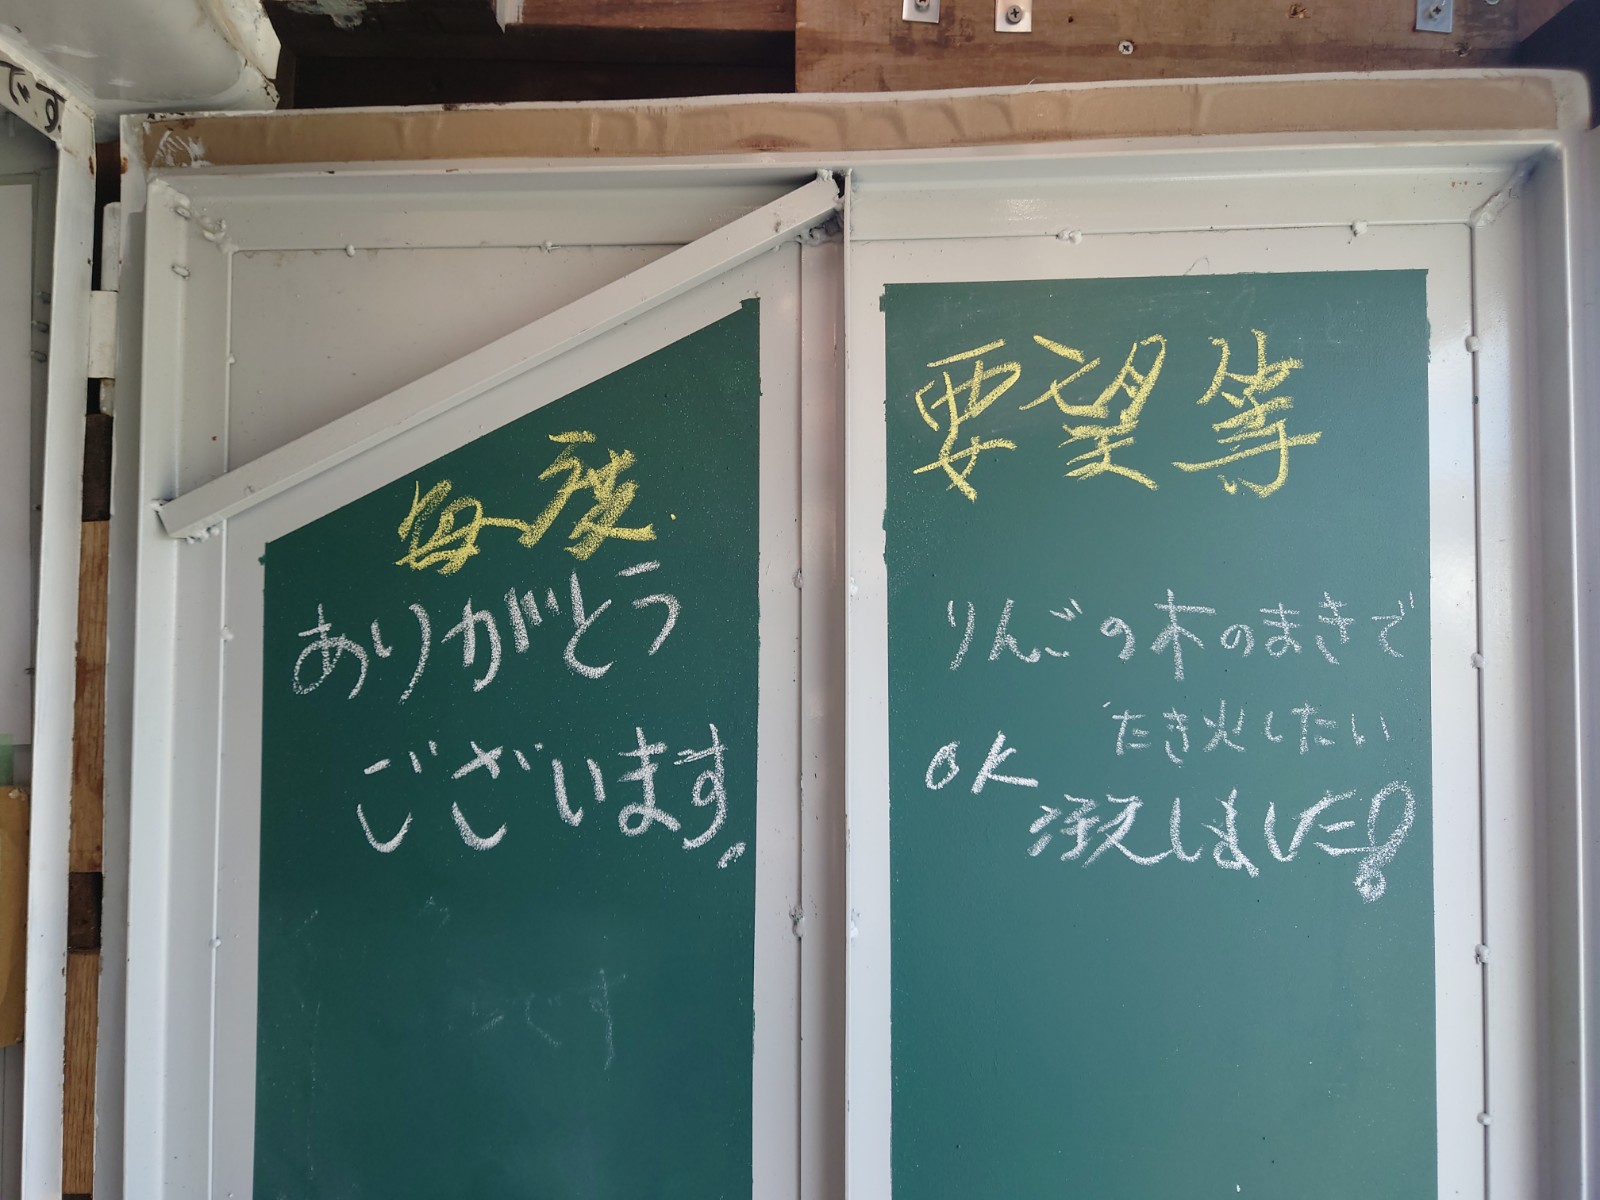 です
毎度
ありがとう
ございます
要望等
りんごの木のまきで
たき火したい
OK
添えしました!